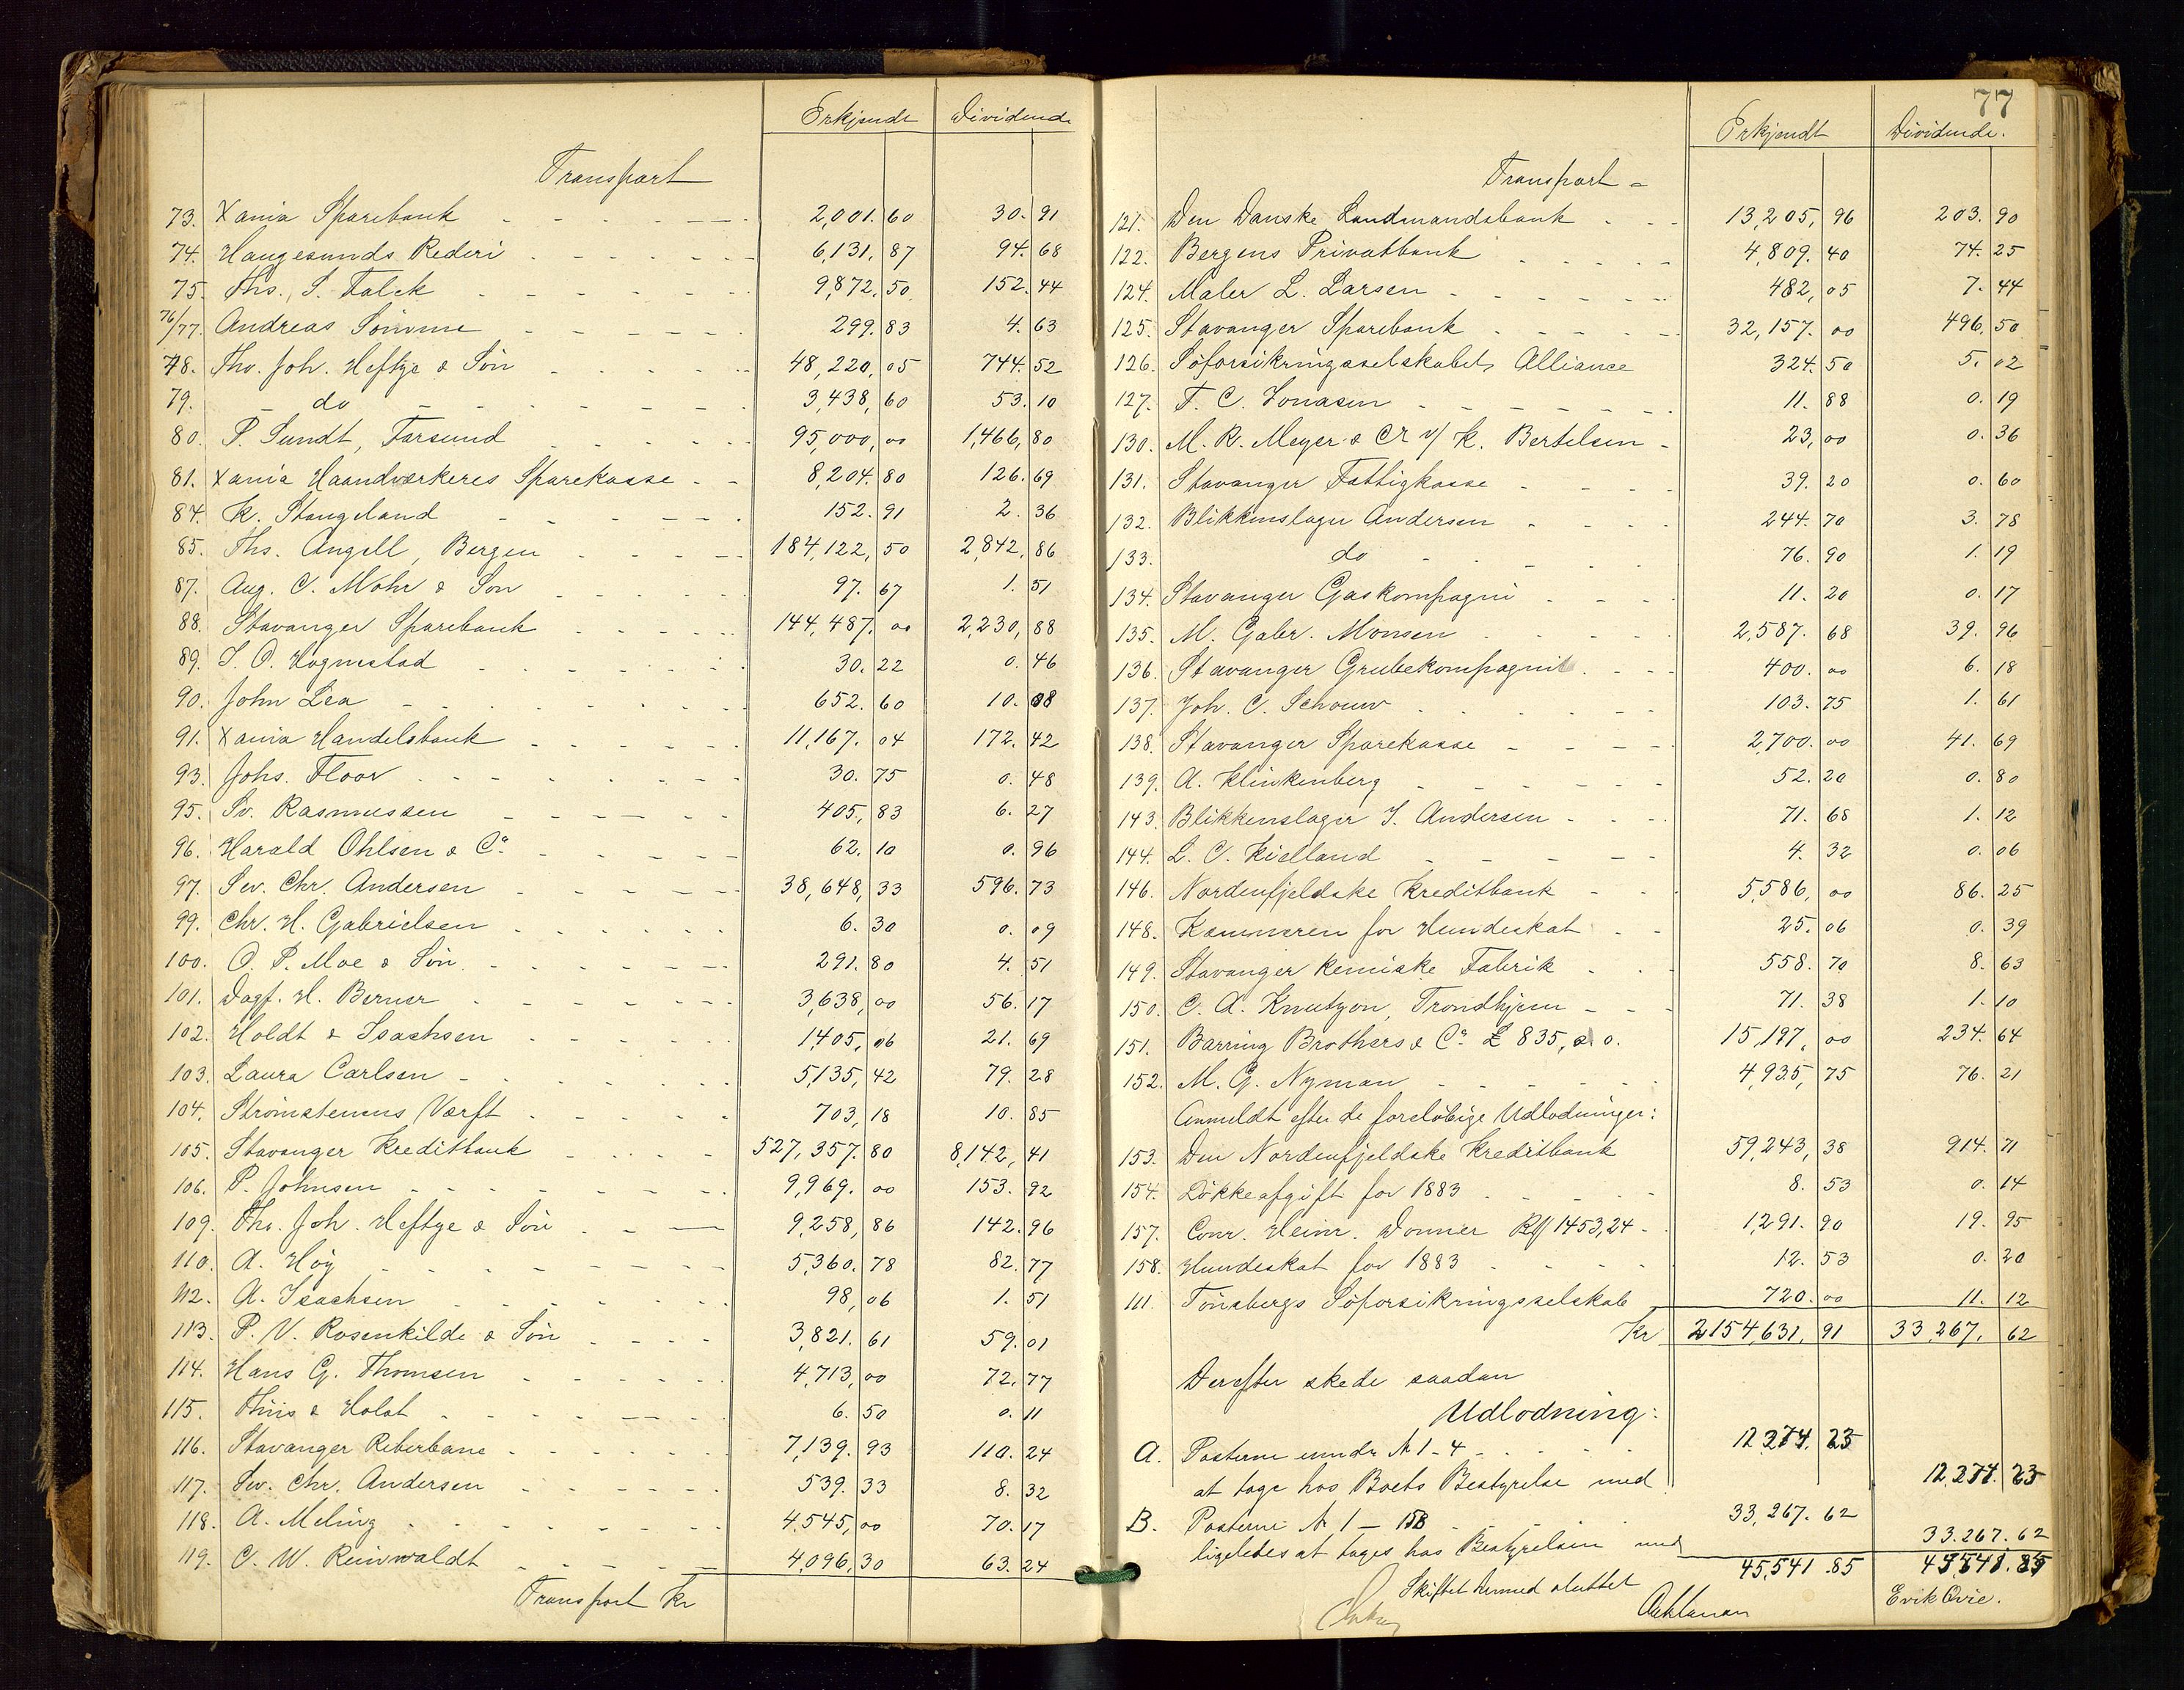 Erkjendt Dividende
Transport
73. Xania Sparebank 2,001.60 30.91
74. Haugesunds Rederi 6,131,87 94.68
75. Ths. S. Falck 9,872.50 152.44
76/77. Andreas Sömme 299.83 4.63
78. Tho. Joh. Heftye & Sön 48,220,05 744.52
79. - do - 3,438,60 53.10
80. P. Sundt, Farsund 95,000,00 1,466,80
81. Xania Haandværkeres Sparekasse 8,204.80 126.69
84. K. Stangeland 152.91 2.36
85. Ths. Angell, Bergen 184,122,50 2,842,86
87. Aug. C. Mohr & Son 97.67 1.51
88. Stavanger Sparebank 144,487.00 2,230,88
89. S. O. Hogmestad 30.22 0.46
90. John Lea 652.60 10.08
91. Xania Handelsbank 11,167.04 172.42
93. Johs. Floor 30.75 0.48
95. Sv. Rasmussen 405,83 6.27
96. Harald Ohlsen & Co 62.10 0.96
97. Sev. Chr. Andersen 38,648,33 596.73
99. Chr. H. Gabrielsen 6.30 0.09
100. O. P. Moe & Sön 291.80 4.51
101. Dagf. H. Berner 3,638,00 56.17
102. Holdt & Isachsen 1,405,06 21.69
103. Laura Carlsen 5,135,42 79.28
104. Strömstenens Værft 703,18 10.85
105. Stavanger Kreditbank 527,357.80 8,142,41
106. P. Johnsen 9,969.00 153.92
109. Tho. Joh. Heftye & Sön 9,258,86 142.96
110. A. Höy 5,360.78 82.77
112. A. Isachsen 98,06 1.51
113. P. V. Rosenkilde & Sön 3,821.61 59.01
114. Hans G. Thomsen 4,713,00 72.77
115. Thiis & Holdt 6.50 0.11
116. Stavanger Reberbane 7,139.93 110.24
117. Sev. Chr. Andersen 539.33 8.32
118. A. Meling 4,545,00 70.17
119. C. W. Reinwaldt 4,096,30 63.24
Transport Kr
77
Erkjendt Dividende.
Transport
121. Den Danske Landmandsbank 13,205,96 203.90
122. Bergens Privatbank 4,809.40 74.25
124. Maler L. Larsen 482,05 7.44
125. Stavanger Sparebank 32,157.00 496.50
126. Söforsikringsselskabet Alliance 324.50 5.02
127. T. C. Jonasen 11.88 0.19
130. M. R. Meyer & Co v/ K. Bertelsen 23,00 0.36
131. Stavanger Fattigkasse 39.20 0.60
132. Blikkenslager Andersen 244.70 3.78
133. do 76.90 1.19
134. Stavanger Gaskompagni 11.20 0.17
135. M. Gabr. Monsen 2,587.68 39.96
136. Stavanger Grubekompagni 400.00 6.18
137. Joh. C. Schouw 103.75 1.61
138. Stavanger Sparekasse 2,700.00 41.69
139. A. Klinkenberg 52.20 0.80
143. Blikkenslager J. Andersen 71.68 1.12
144. L. C. Kielland 4.32 0.06
146. Nordenfjeldske Kreditbank 5,586,00 86.25
148. Kæmneren for Hundeskat 25.06 0.39
149. Stavanger kemiske Fabrik 558.70 8.63
150. C. A. Knutzon, Trondhjem 71.38 1.10
151. Barring Brothers & Co £ 835, 0. 15,197,00 234.64
152. M. G. Nyman 4,935,75 76.21
Anmeldt efter de foreløbige Udlodninger:
153. Den Nordenfjeldske Kreditbank 59,243,38 914.71
154. Lökkeafgift for 1883 8.53 0.14
157. Conr. Heinr. Donner RM 1453,24 1,291.90 19.95
158. Hundeskat for 1883 12.53 0.20
111. Tönsbergs Söforsikringsselskab 720.00 11.12
Kr 2154,631,91 33,267.62
Derefter skede saadan
Udlodning:
A. Posterne under No 1-4 12274.23
at tage hos Boets Bestyrelse med 12,274.23
B. Posterne No 1 - 158 33,267.62
ligeledes at tages hos Bestyrelsen med 33.267.62
45,541.85 45,541.85
Skiftet dermed sluttet
Erik Qvie.